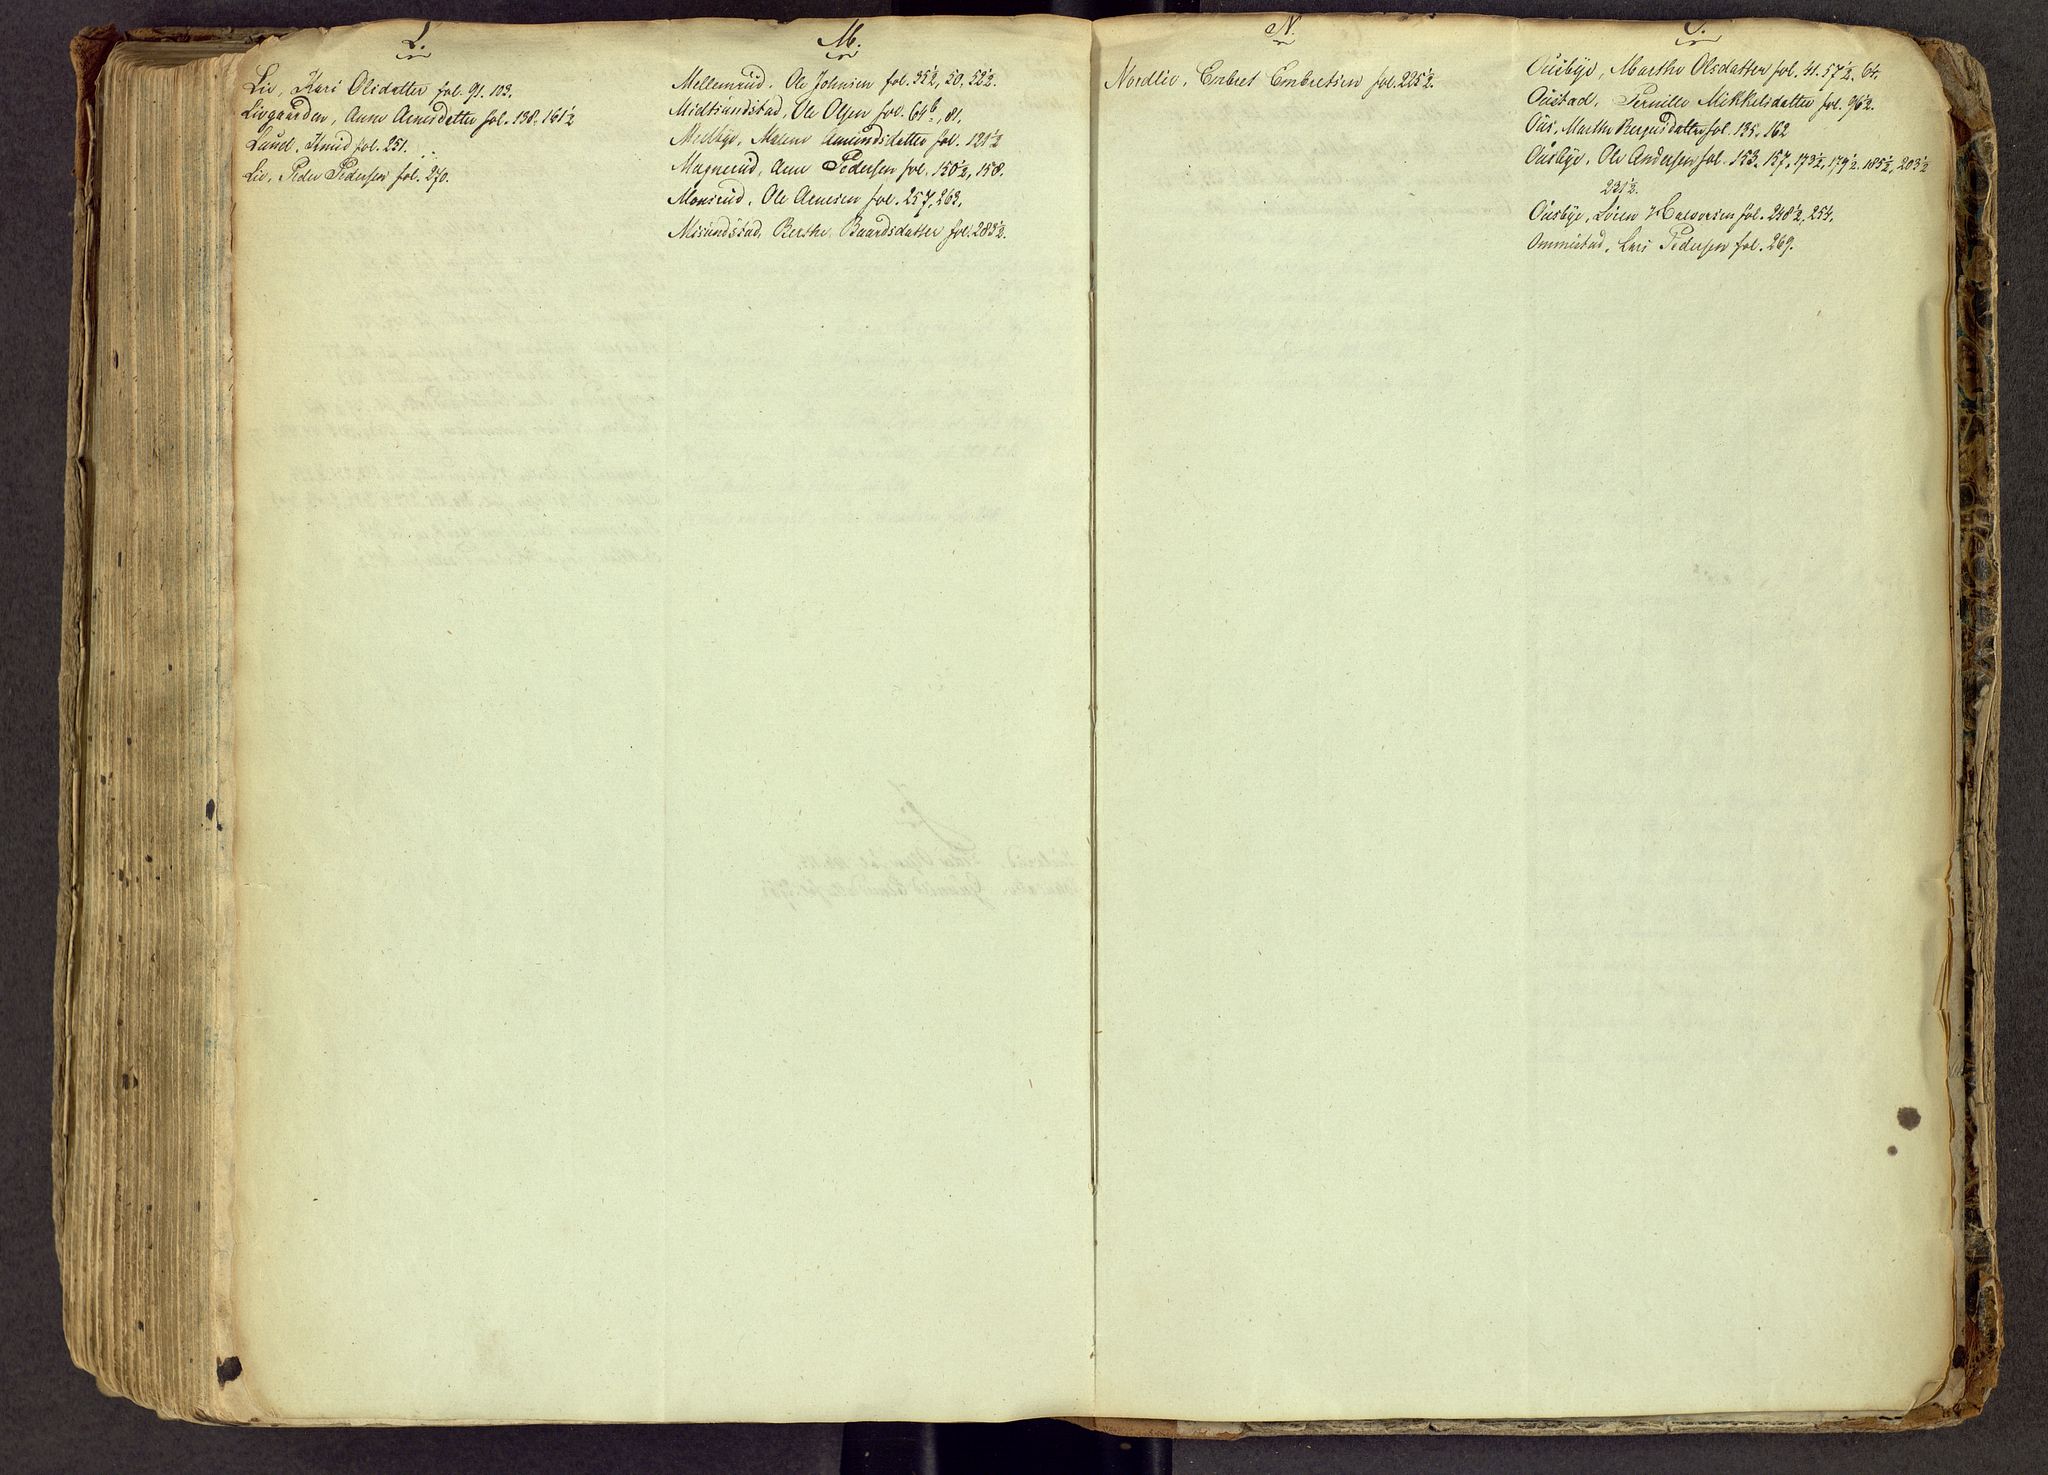 L.
Lie, Kari Olsdatter fol. 91. 103.
Livgaarden, Anne Arnesdatter fol. 138, 161½
Lund, Knud fol. 251.
Lie, Peder Pedersen fol. 270.
M.
Mellemrud, Ole Johnsen fol. 35½, 50, 52½.
Midtsundstad, Ole Olsen fol. 64b, 81.
Melbye, Malene Amundsdatter fol. 121½
Magnerud, Arne Pedersen fol. 150½, 158.
Monsrud, Ole Arnesen fol. 257, 263.
Misundstad, Berthe Baardsdatter fol. 283½.
N.
Nordlie, Enbret Embretsen fol. 225½.
O.
Ousbye, Marthe Olsdatter fol. 41. 57½. 64.
Oustad, Pernille Mikkelsdatter fol. 96½.
Ous, Marthe Bergersdatter fol. 135. 162
Ousbye, Ole Andersen fol. 153. 157, 173½, 179½. 185½, 203½
231½.
Ousbye, Søren Halvorsen fol. 248½, 254.
Ommestad, Lars Pedersen fol. 269.